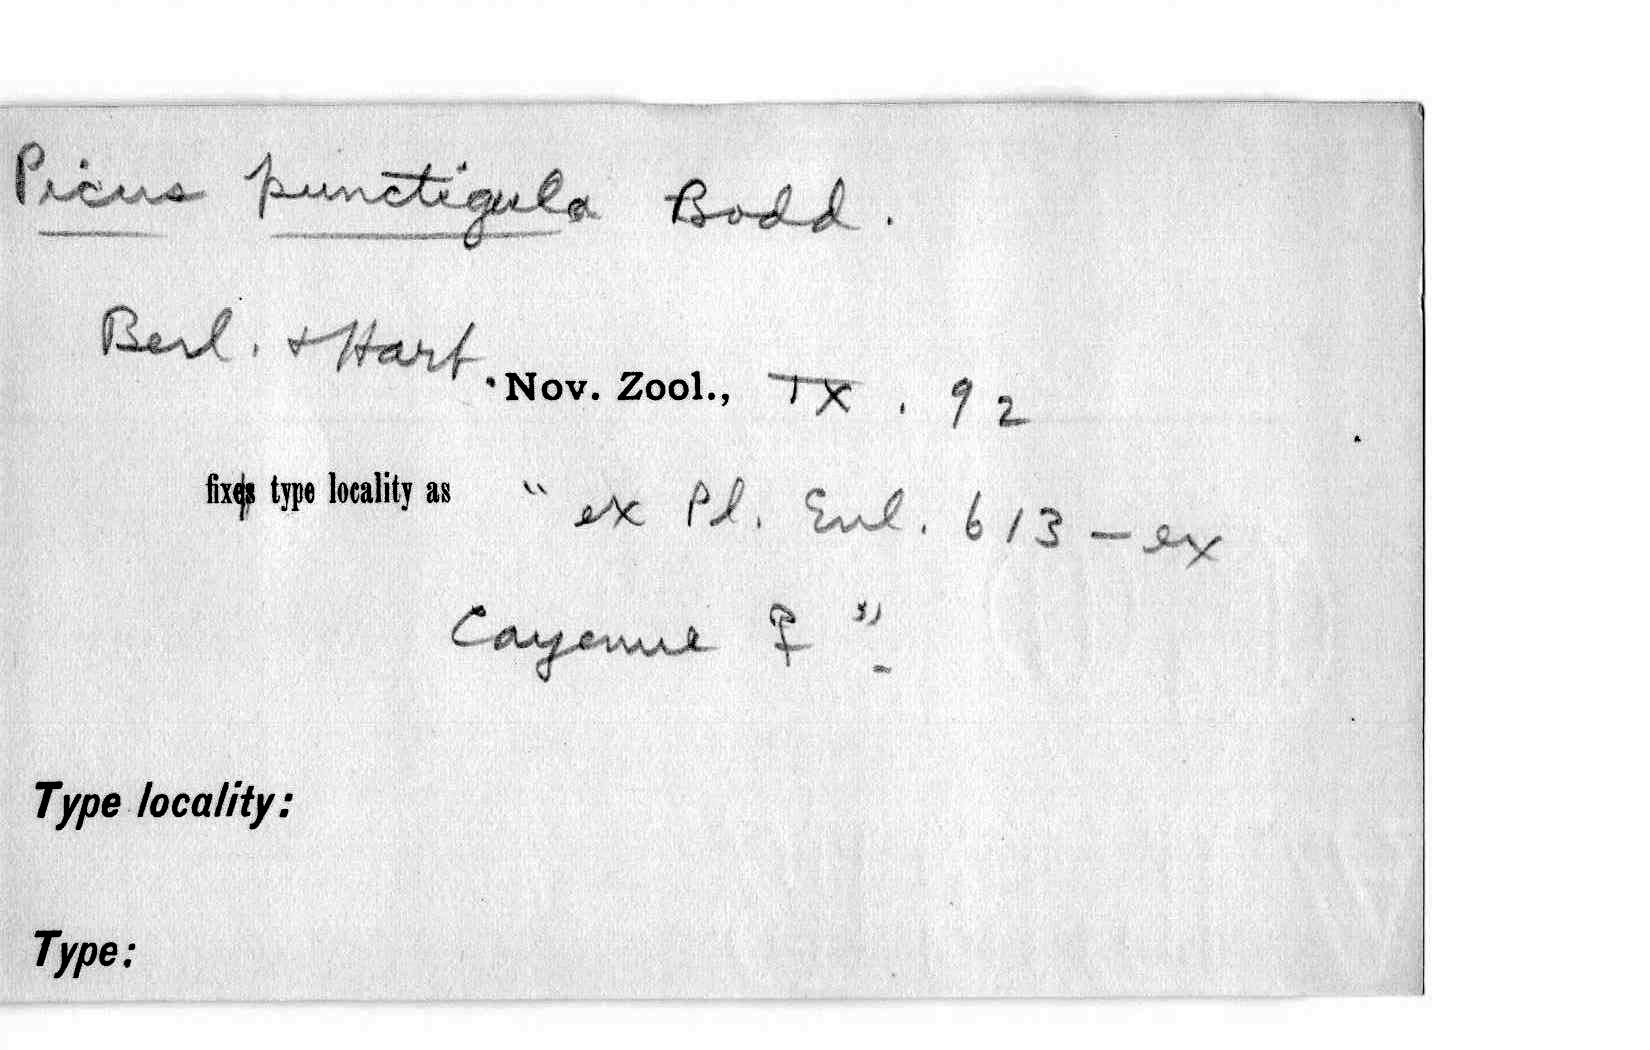 Picus punctigula Bodd.
Berl. & Hart. Nov. Zool., IX. 92
fixes type locality as "ex Pl. Enl. 613 – ex
Cayenne ♀".
Type locality:
Type: